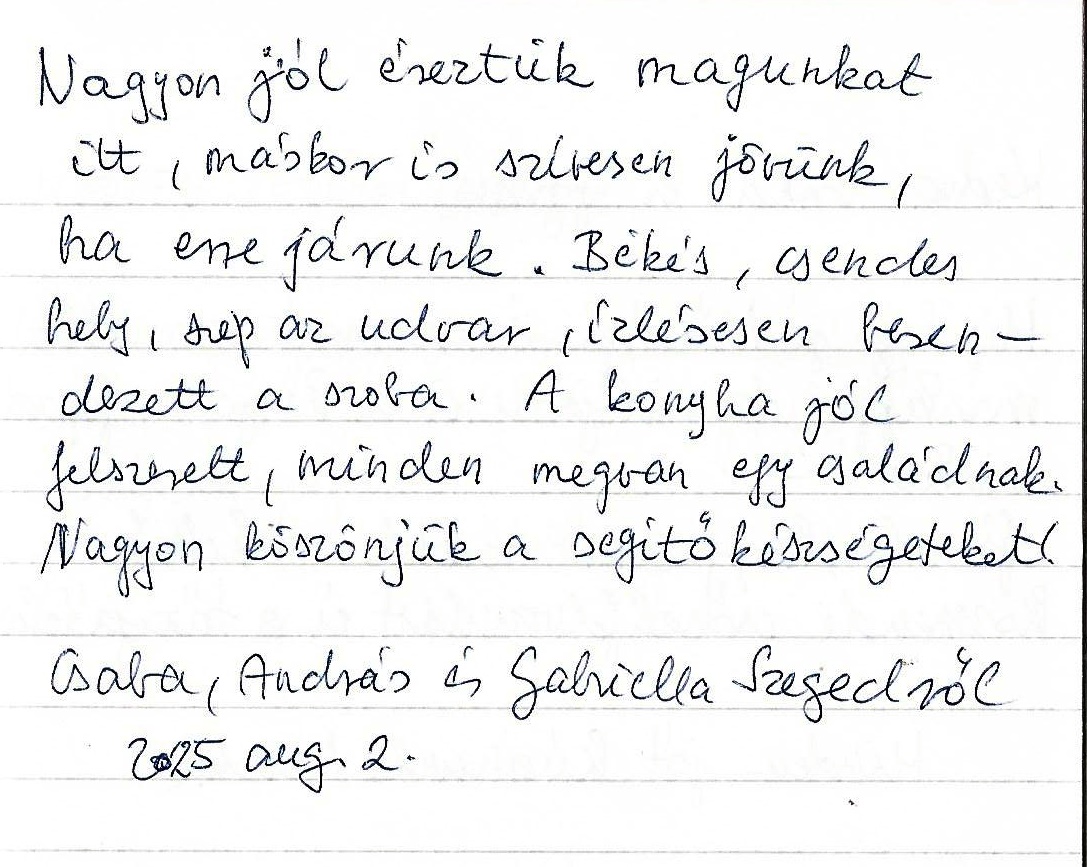 Nagyon jól éreztük magunkat
itt, máskor is szívesen jövünk,
ha erre járunk. Békés, csendes
hely, szép az udvar, ízlésesen beren-
dezett a szoba. A konyha jól
felszerelt, minden megvan egy családnak.
Nagyon köszönjük a segítőkészségeteket!
Csaba, András és Gabriella Szegedről
2025 aug. 2.